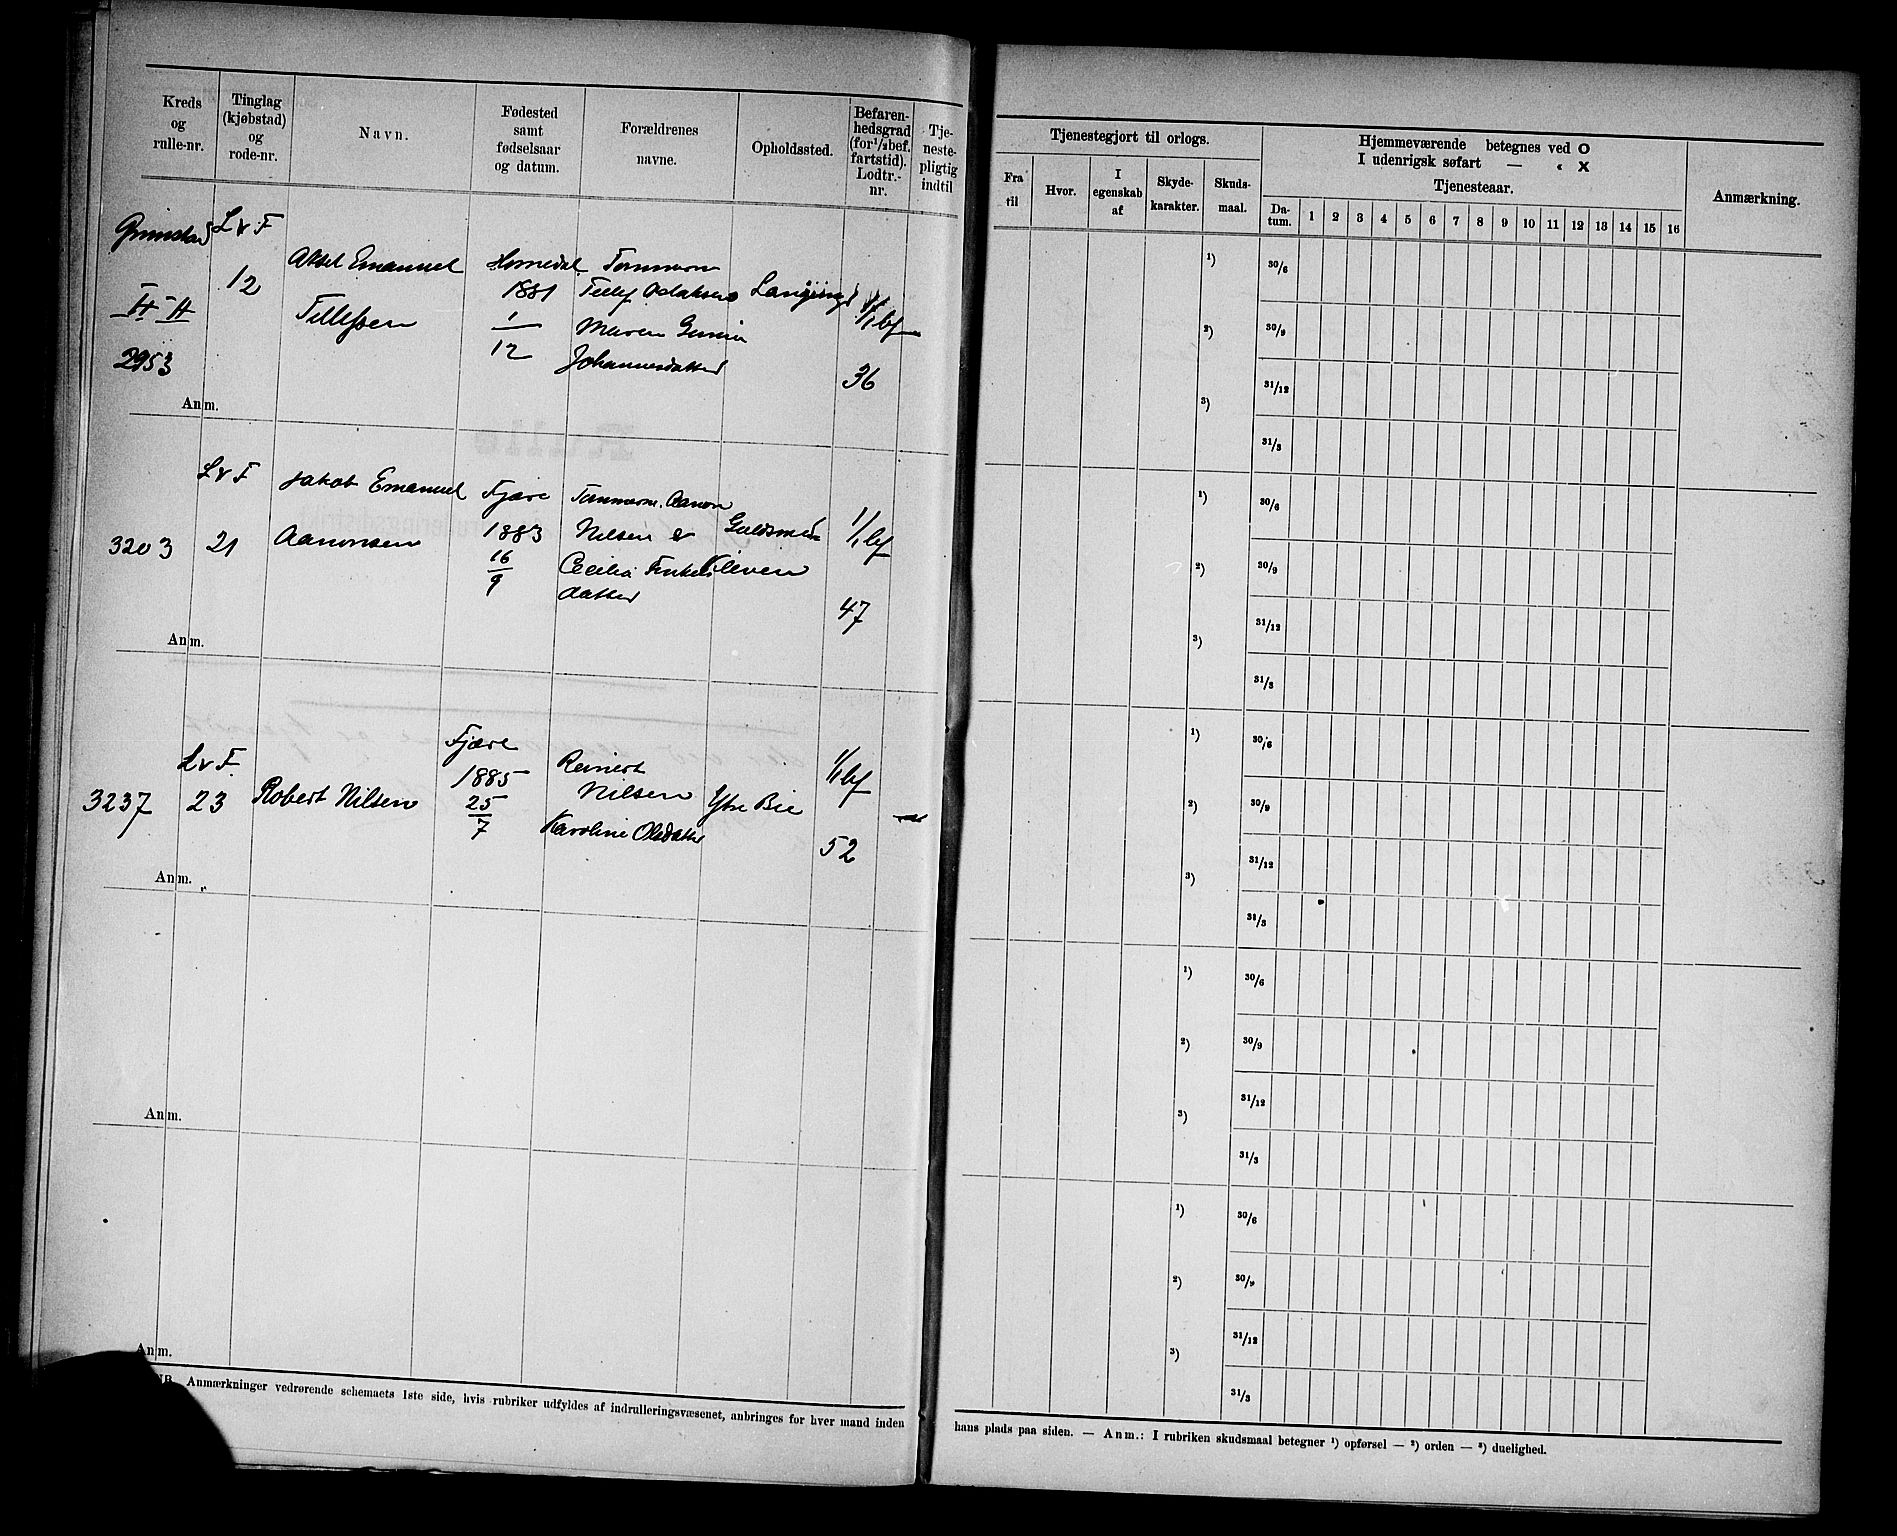 Kreds
og
rulle-nr.
Tinglag
(kjøbstad)
og
rode-nr.
Navn.
Fødested
samt
fødselsaar
og datum.
Forældrenes
navne.
Opholdssted.
Befaren-
hedsgrad
(for 1/2 bef.
fartstid).
Lodtr.-
nr.
Tje-
neste-
pligtig
indtil
Grimstad
II-II
2953
L v F
12
Aksel Emanuel
Tellefsen
1881
1
12
Tømmerm
Tellef
Maren
Johannesdatter
1/1 bef
36
Anm.
3203
L v F
21
Jakob Emanuel
Aanonsen
Fjære
1883
16
9
Tømmerm. Aanon
Nilsen &
Cecilia
datter
Guldsmed
Kleven
1/1 bef
47
Anm.
3237
L v F.
23
Robert Nilsen
Fjære
1885
25
7
Reinert
Nilsen
Karoline Olsdatter
Ytre Bie
1/1 bef
52
Anm.
Anm.
Anm.
NB. Anmærkninger vedrørende schemaets 1ste side, hvis rubriker udfyldes af indrulleringsvæsenet, anbringes for hver mand inden
Tjenestegjort til orlogs.
Fra
til
Hvor.
I
egenskab
af
Skyde-
karakter.
Skuds-
maal.
Hjemmeværende betegnes ved O
I udenrigsk søfart — « X
Tjenesteaar.
Da-
tum.
1 2 3 4 5 6 7 8 9 10 11 12 13 14 15 16
Anmærkning.
1)
30/6
2)
30/9
31/12
3)
31/3
1)
30/6
2)
30/9
31/12
3)
31/3
1)
30/6
2)
30/9
31/12
3)
31/3
1)
30/6
2)
30/9
31/12
3)
31/3
1)
30/6
2)
30/9
31/12
3)
31/3
hans plads paa siden. — Anm.: I rubriken skudsmaal betegner 1) opførsel — 2) orden — 3) duelighed.